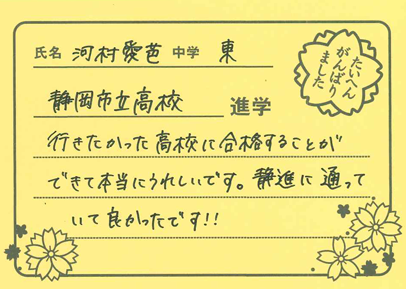 氏名 河村愛芭 中学 東
たいへん
がんばり
ました
静岡市立高校 進学
行きたかった高校に合格することが
できて本当にうれしいです。静進に通って
いて良かったです!!